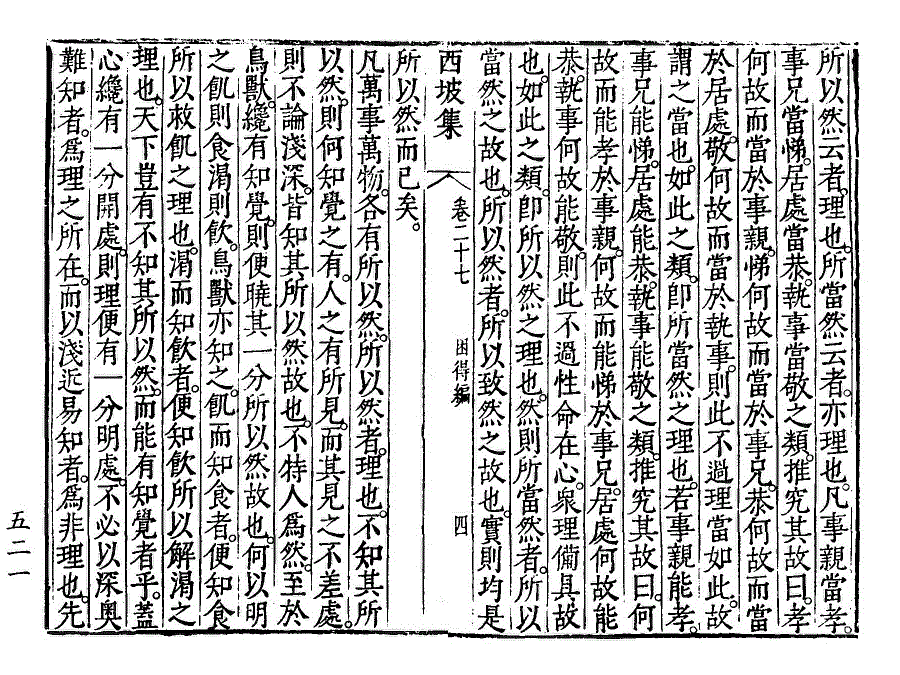 所以然云者。理也。所當然云者。亦理也。凡事親當孝。
事兄當悌。居處當恭。執事當敬之類。推究其故曰。孝
何故而當於事親。悌何故而當於事兄。恭何故而當
於居處。敬何故而當於執事。則此不過理當如此。故
謂之當也。如此之類。卽所當然之理也。若事親能孝。
事兄能悌。居處能恭。執事能敬之類。推究其故曰。何
故而能孝於事親。何故而能悌於事兄。居處何故能
恭。執事何故能敬。則此不過性命在心。衆理備具故
也。如此之類。卽所以然之理也。然則所當然者。所以
當然之故也。所以然者。所以致然之故也。實則均是
西坡集
卷二十七
困得編
四
所以然而已矣。
凡萬事萬物。各有所以然。所以然者。理也。不知其所
以然。則何知覺之有。人之有所見。而其見之不差處。
則不論淺深。皆知其所以然故也。不特人爲然。至於
鳥獸。纔有知覺。則便曉其一分所以然故也。何以明
之。飢則食渴則飮。鳥獸亦知之。飢而知食者。便知食
所以救飢之理也。渴而知飮者。便知飮所以解渴之
理也。天下豈有不知其所以然。而能有知覺者乎。蓋
心纔有一分開處。則理便有一分明處。不必以深奧
難知者。爲理之所在。而以淺近易知者。爲非理也。先
五二一